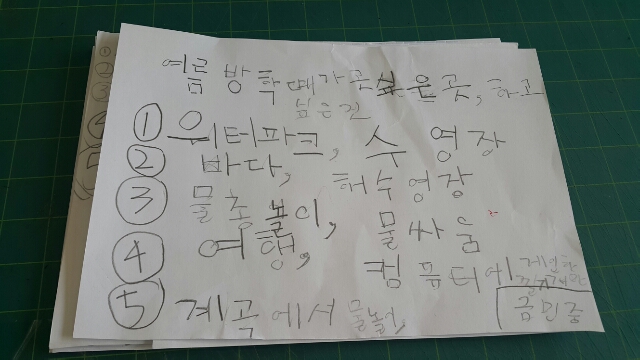 여름 방학 때 가고 싶은 곳, 하고
싶은 것
① 워터파크, 수영장
② 바다, 해수영장
③ 물총놀이, 물싸움
④ 여행, 컴퓨터에
⑤ 계곡에서 물놀이,
금민종